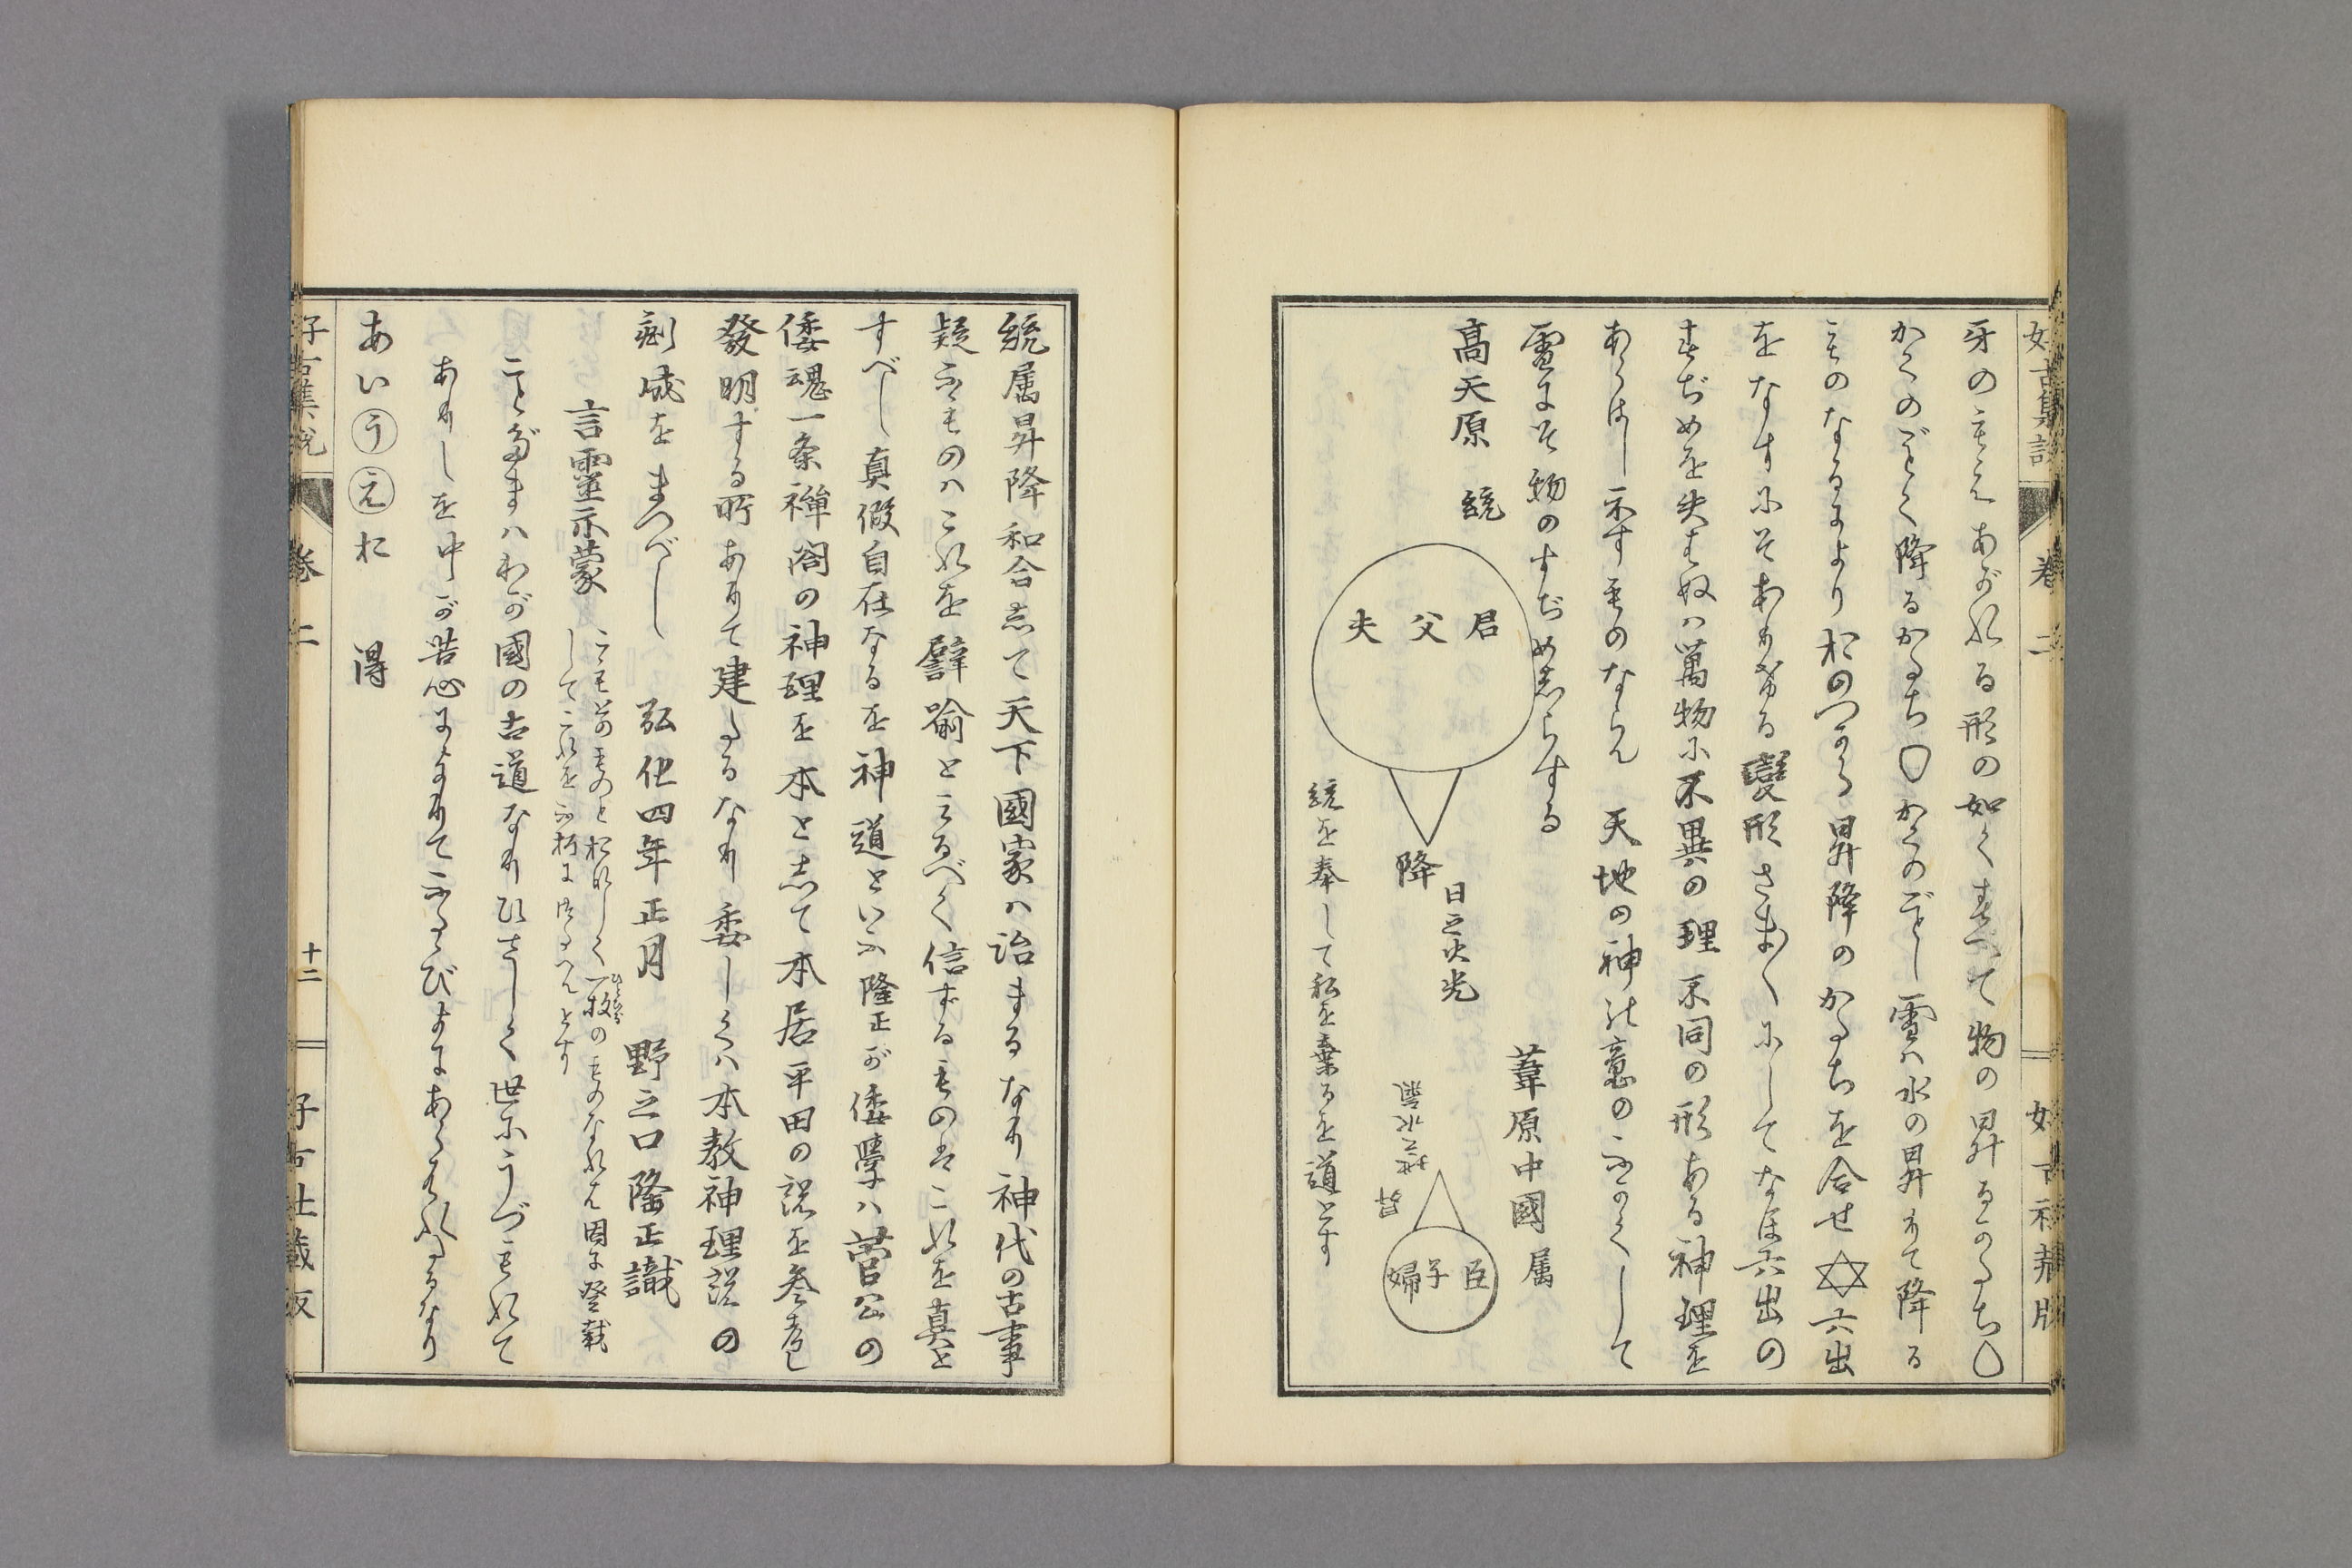 好古集説 巻二 好古社蔵版
牙のもえあがれる形の如くすべて物の昇るかたち
かくのごとく降るかたち かくのごとし雪ハ水の昇りて降る
ものなるによりおのづから昇降のかたちを合せ✡六出
をなすにぞありける變形さま〲にしてなほ六出の
すぢめを失はぬハ萬物に不異の理不同の形ある神理を
あらはし示すものならん 天地の神の意のふかくして
雪にそ物のすぢめしらする
高天原 統
君 父 夫
降
日之火光
葦原中國 属
地之水氣
昇
臣 子 婦
統を奉して私を棄るを道とす
統属昇降和合して天下國家ハ治まるなり神代の古事
疑ふものハこれを譬喩とみるべく信ずるものはこれを真と
すべし真假自在なるを神道といふ隆正が倭學ハ菅公の
倭魂一条禅閤の神理を本として本居平田の説を参考し
發明する所ありて建たるなり委しくハ本教神理説の
刻成をまつべし
弘化四年正月 野之口隆正識
言靈示蒙 こも前のものとおなしく一枚のものなれは因に登載
してこれを不朽に伝へんとす
ことだまハわが國の古道なりひさしく世にうづもれて
ありしを中が苦心によりてふたゝびよにあらはれたるなり
あいうえお 得
好古集説 巻二 十二 好古社蔵版